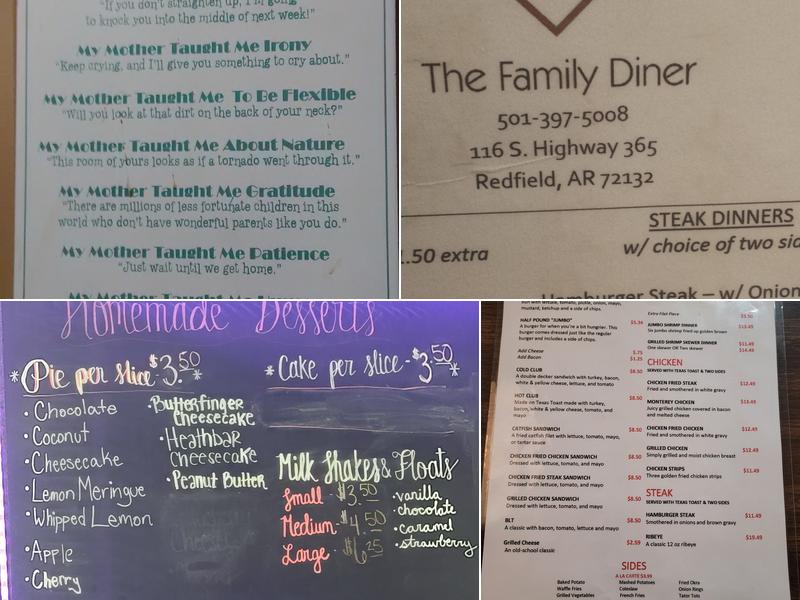 "If you don't straighten up, I'm going
to knock you into the middle of next week!"
My Mother Taught Me Irony
"Keep crying, and I'll give you something to cry about."
My Mother Taught Me To Be Flexible
"Will you look at that dirt on the back of your neck?"
My Mother Taught Me About Nature
"This room of yours looks as if a tornado went through it."
My Mother Taught Me Gratitude
"There are millions of less fortunate children in this
world who don't have wonderful parents like you do."
My Mother Taught Me Patience
"Just wait until we get home."
My Mother Taught Me
The Family Diner
501-397-5008
116 S. Highway 365
Redfield, AR 72132
STEAK DINNERS
.50 extra
w/ choice of two sid
Hamburger Steak – w/ Onion
Homemade Desserts
*Pie per slice $3.50*
*Cake per slice - $3.50*
• Chocolate
• Coconut
• Cheesecake
• Lemon Meringue
• Whipped Lemon
• Apple
• Cherry
• Butterfinger
Cheesecake
• Heathbar
Cheesecake
• Peanut Butter
Milk Shakes & Floats
Small - $3.50
Medium - $4.50
Large - $6.25
• vanilla
• chocolate
• caramel
• strawberry
mustard, ketchup and a side of chips.
HALF POUND "JUMBO" $5.36
A burger for when you're a bit hungrier. This
burger comes dressed just like the regular
burger and includes a side of chips.
Add Cheese $.75
Add Bacon $1.25
COLD CLUB $8.50
A double decker sandwich with turkey, bacon,
white & yellow cheese, lettuce, and tomato
HOT CLUB $8.50
Made on Texas Toast made with turkey,
bacon, white & yellow cheese, tomato, and
mayo
CATFISH SANDWICH $8.50
A fried catfish filet with lettuce, tomato, mayo,
or tartar sauce
CHICKEN FRIED CHICKEN SANDWICH $8.50
Dressed with lettuce, tomato, and mayo
CHICKEN FRIED STEAK SANDWICH $8.50
Dressed with lettuce, tomato, and mayo
GRILLED CHICKEN SANDWICH $8.50
Dressed with lettuce, tomato, and mayo
BLT $8.50
A classic with bacon, tomato, lettuce and mayo
Grilled Cheese $2.59
An old-school classic
Extra Filet Piece
JUMBO SHRIMP DINNER $13.49
Six jumbo shrimp fried up golden brown
GRILLED SHRIMP SKEWER DINNER $11.49
One skewer OR Two skewer $14.49
CHICKEN
SERVED WITH TEXAS TOAST & TWO SIDES
CHICKEN FRIED STEAK $12.49
Fried and smothered in white gravy
MONTEREY CHICKEN $13.49
Juicy grilled chicken covered in bacon
and melted cheese
CHICKEN FRIED CHICKEN $12.49
Fried and smothered in white gravy
GRILLED CHICKEN $12.49
Simply grilled and moist chicken breast
CHICKEN STRIPS $11.49
Three golden fried chicken strips
STEAK
SERVED WITH TEXAS TOAST & TWO SIDES
HAMBURGER STEAK $11.49
Smothered in onions and brown gravy
RIBEYE $19.49
A classic 12 oz ribeye
SIDES
A LA CARTE $3.99
Baked Potato Mashed Potatoes Fried Okra
Waffle Fries Coleslaw Onion Rings
Grilled Vegetables French Fries Tator Tots